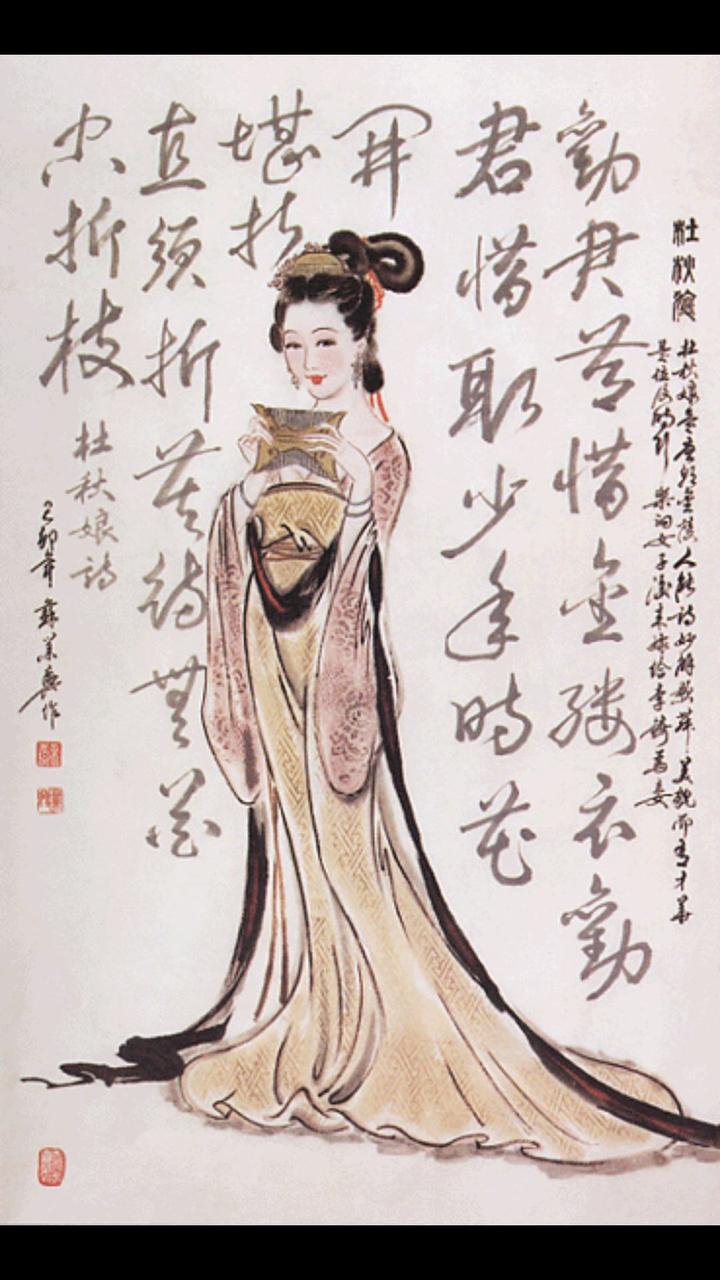 杜秋娘
杜秋娘是唐朝金陵人能诗妙解歌舞美貌而有才华
是位及时行樂的女子後来嫁给李錡為妾
勸君莫惜金縷衣勸
君惜取少年時花
開
堪折
直須折莫待無花
空折枝
杜秋娘詩
己卯年 作